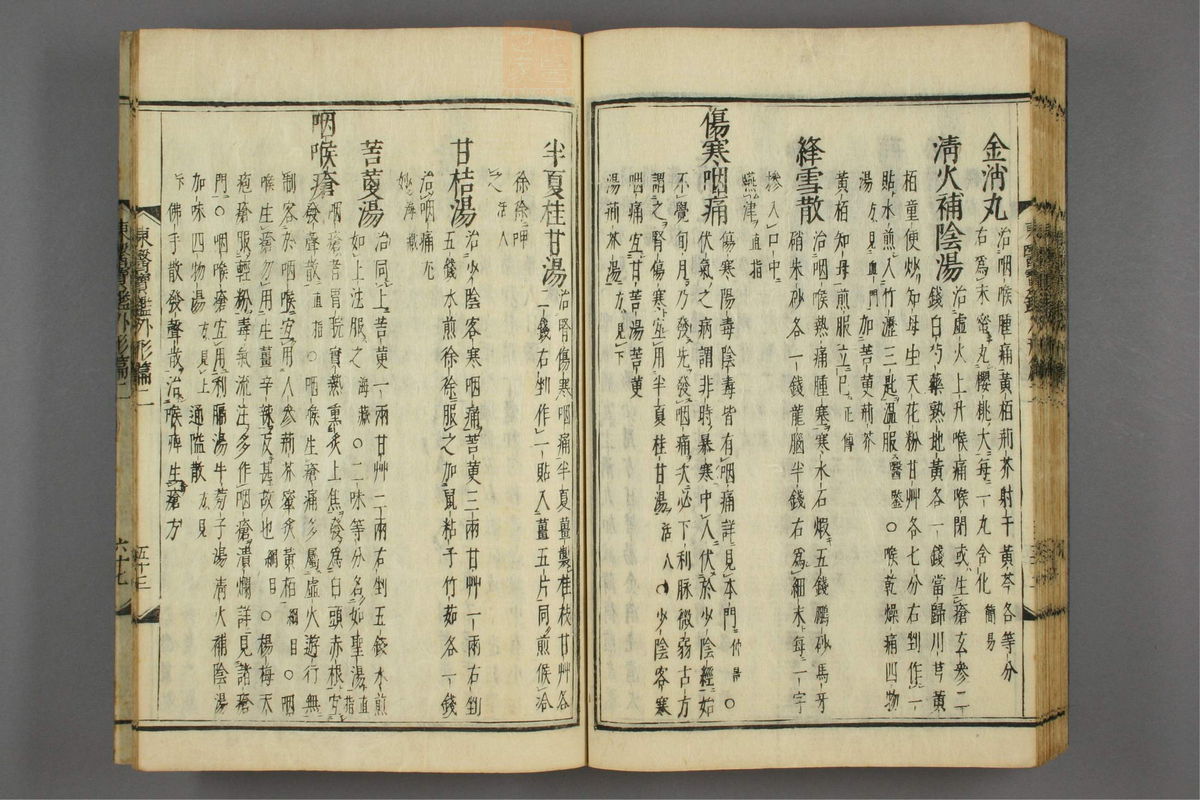 金消丸 治咽喉腫痛黃栢荊芥射干黃芩各等分
右爲末蜜丸櫻桃大每一丸含化簡易
淸火補陰湯 治虛火上升喉痛喉閉或生瘡玄參二
錢白芍藥熟地黃各一錢當歸川芎黃
栢童便炒知母生天花粉甘艸各七分右剉作一
貼水煎入竹瀝三匙溫服醫鑒○喉乾燥痛四物
湯方見血門加苦蔞荊芥
黃栢知母煎服立已正傳
絳雪散 治咽喉熱痛腫塞寒水石煆五錢鵬砂馬牙
硝朱砂各一錢龍腦半錢右爲細末每一字
摻入口中
嚥津直指
傷寒咽痛 傷寒陽毒陰毒皆有咽痛詳見本門○
伏氣之病謂非時暴寒中人伏於少陰經始
不覺旬月乃發先發咽痛次必下利脉微弱古方
謂之腎傷寒宜用半夏桂甘湯活人○少陰客寒
咽痛宜甘苦湯苦蔞
湯荊芥湯方見下
半夏桂甘湯 治腎傷寒咽痛半夏薑製桂枝甘艸各
一錢右剉作一貼入薑五片同煎候冷
徐徐呷
之活人
甘桔湯 治少陰客寒咽痛苦蔞三兩甘艸一兩右剉
五錢水煎徐徐服之加鼠粘子竹茹各一錢
治咽痛尤
妙海藏
苦蔞湯 治同上苦蔞一兩甘艸二兩右剉五錢水煎
如上法服之海藏○二味等分名如聖湯直指
咽喉瘡 咽瘡者胃脘實熱熏炙上焦發爲白頭赤根宜
發聲散直指○咽喉生瘡痛多屬虛火遊行無
制客於咽喉宜用人參荊芥蜜炙黃栢綱目○咽
喉生瘡勿用生薑辛辣反甚故也綱目○楊梅天
疱瘡服輕粉毒氣流注多作咽瘡潰爛詳見諸瘡
門○咽喉瘡宜用利膈湯牛蒡子湯淸火補陰湯
加味四物湯方見上通隘散方見
下佛手散發聲散治喉痺生瘡方
東醫寶鑑外形篇二
五十三
六十七